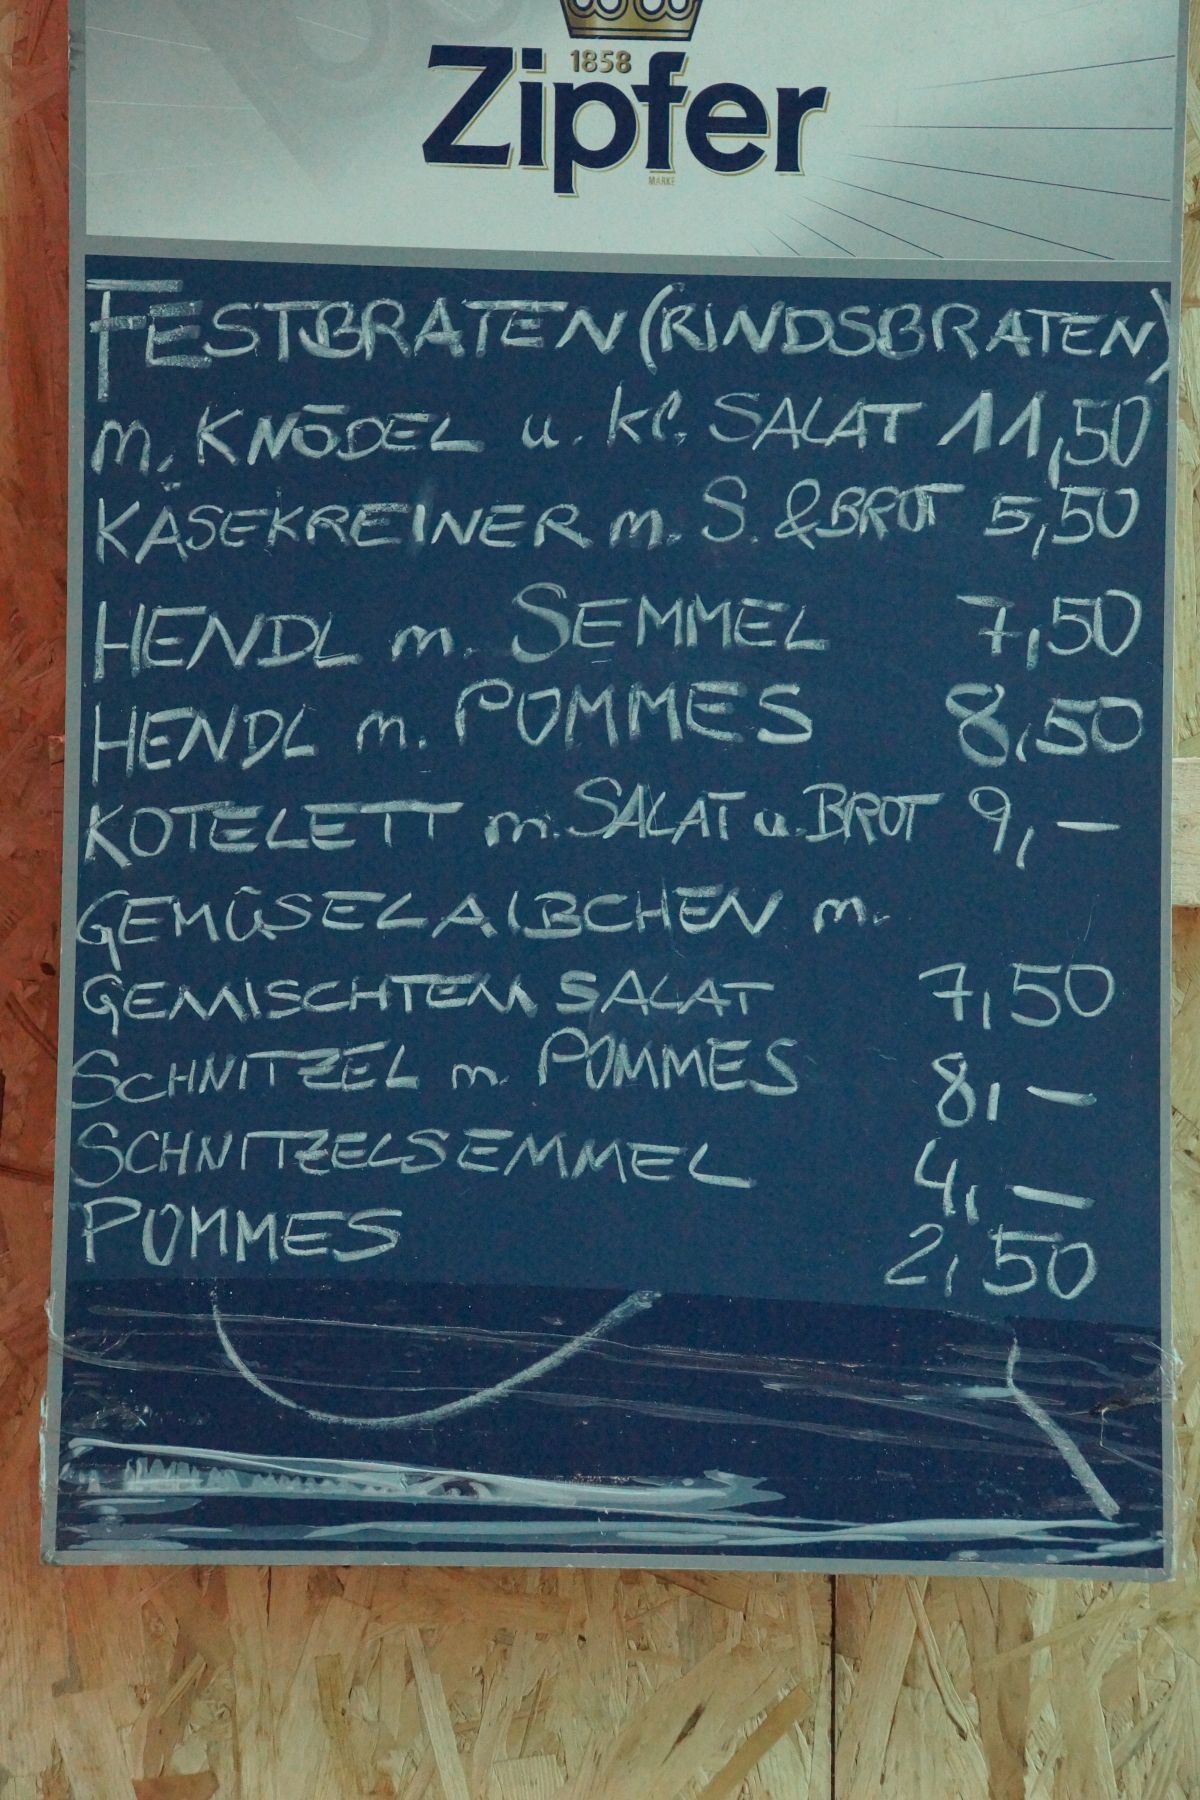 1858
Zipfer
MARKE
FESTBRATEN (RINDSBRATEN)
m. KNÖDEL u. kl. SALAT 11,50
KÄSEKREINER m. S. & BROT 5,50
HENDL m. SEMMEL 7,50
HENDL m. POMMES 8,50
KOTELETT m. SALAT u. BROT 9,-
GEMÜSELAIBCHEN m.
GEMISCHTEM SALAT 7,50
SCHNITZEL m. POMMES 8,-
SCHNITZELSEMMEL 4,-
POMMES 2,50